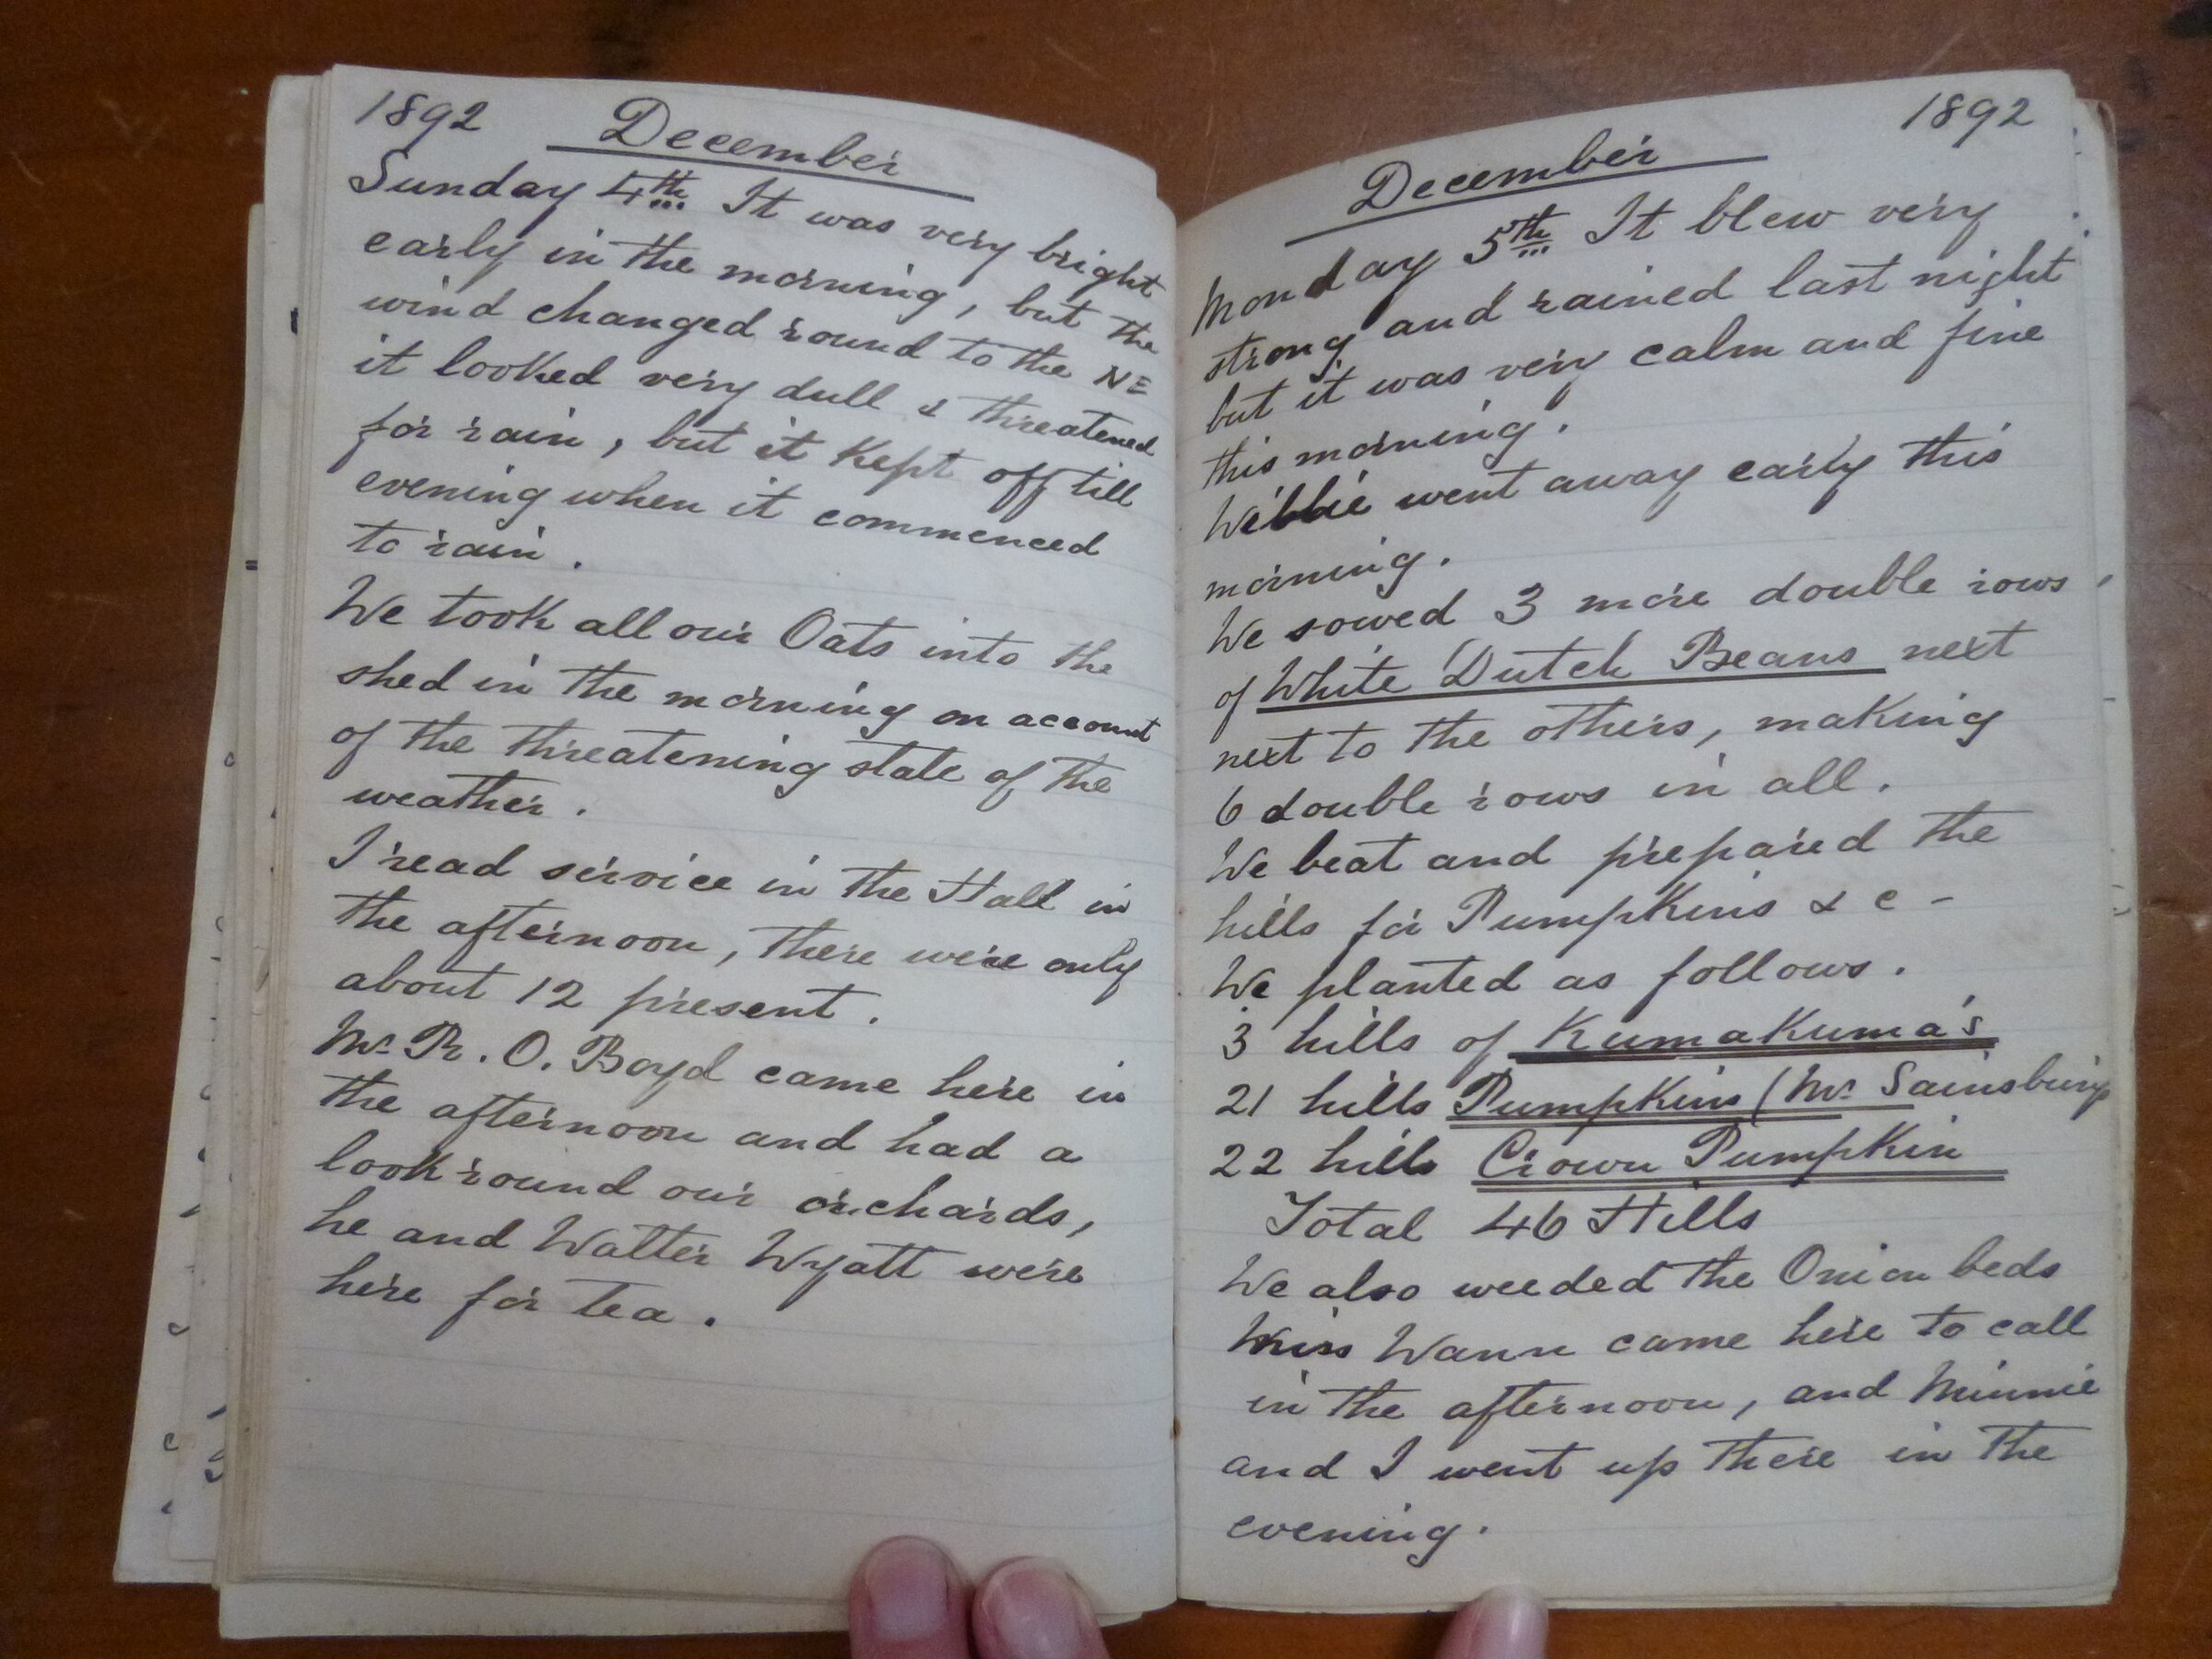 1892 December
Sunday 4th It was very bright
early in the morning, but the
wind changed round to the NE
it looked very dull & threatened
for rain, but it kept off till
evening when it commenced
to rain.
We took all our Oats into the
shed in the morning on account
of the threatening state of the
weather.
I read service in the Hall in
the afternoon, there were only
about 12 present.
Mr R. O. Boyd came here in
the afternoon and had a
look round our orchards,
he and Walter Wyatt were
here for tea.
December 1892
Monday 5th It blew very
strong and rained last night
but it was very calm and fine
this morning.
Willie went away early this
morning.
We sowed 3 more double rows
of White Dutch Beans next
next to the others, making
6 double rows in all.
We beat and prepared the
hills for Pumpkins & c -
We planted as follows.
3 hills of KumaKuma's
21 hills Pumpkins (Mr Sainsbury
22 hills Crown Pumpkin
Total 46 Hills
We also weeded the Onion beds
Miss Wann came here to call
in the afternoon, and Minnie
and I went up there in the
evening.